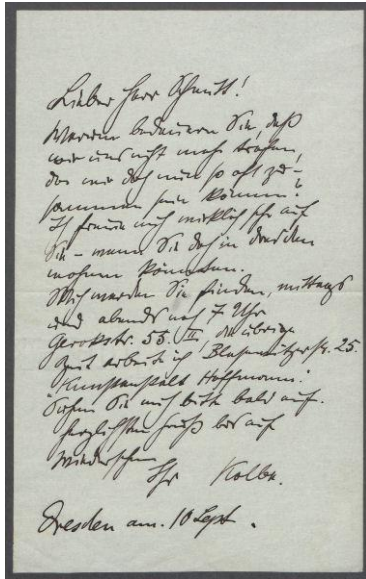 Lieber Herr Schmitt!
Warum bedauern Sie, daß
wir uns nicht mehr
das wir doch nun so oft zu-
sammen sein können?
Ich freue mich wirklich sehr auf
Sie – wenn Sie doch in Dresden
wohnen könnten.
Mich werden Sie finden, mittags
und abends nach 7 Uhr
Gerokstr. 55. II, die übrige
Zeit arbeite ich, Blasewitzerstr. 25.
Kunstanstalt Hoffmann.
Suchen Sie mich bitte bald auf.
Herzlichsten Gruß bis auf
Wiedersehen
Ihr Kolbe.
Dresden am. 10 Sept.